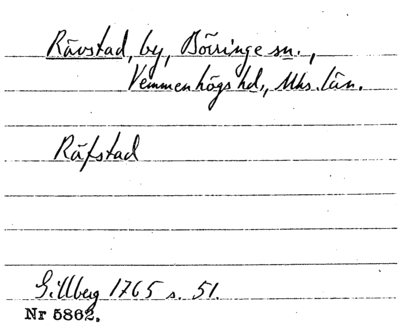 Rävstad, by, Börringe sn.,
Vemmenhögs hd., Mhs. län.
Räfstad
Gillberg 1765 s. 51.
Nr 5862.